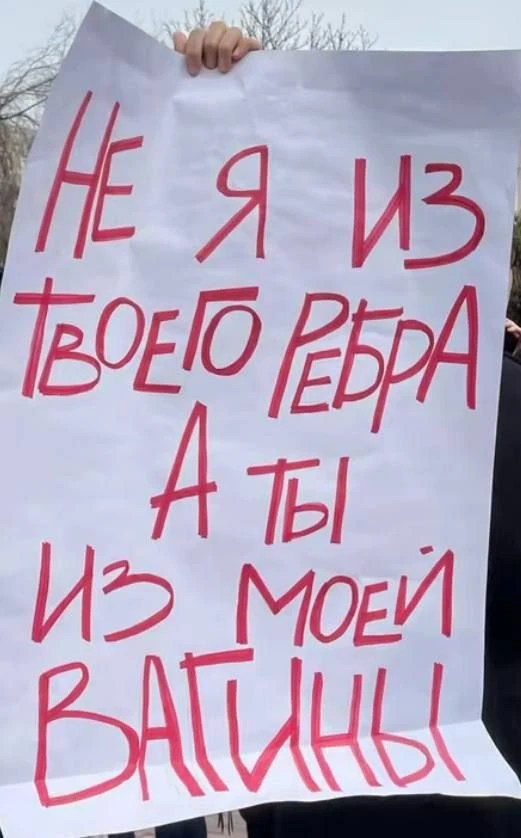 НЕ Я ИЗ
ТВОЕГО РЕБРА
А ТЫ
ИЗ МОЕЙ
ВАГИНЫ